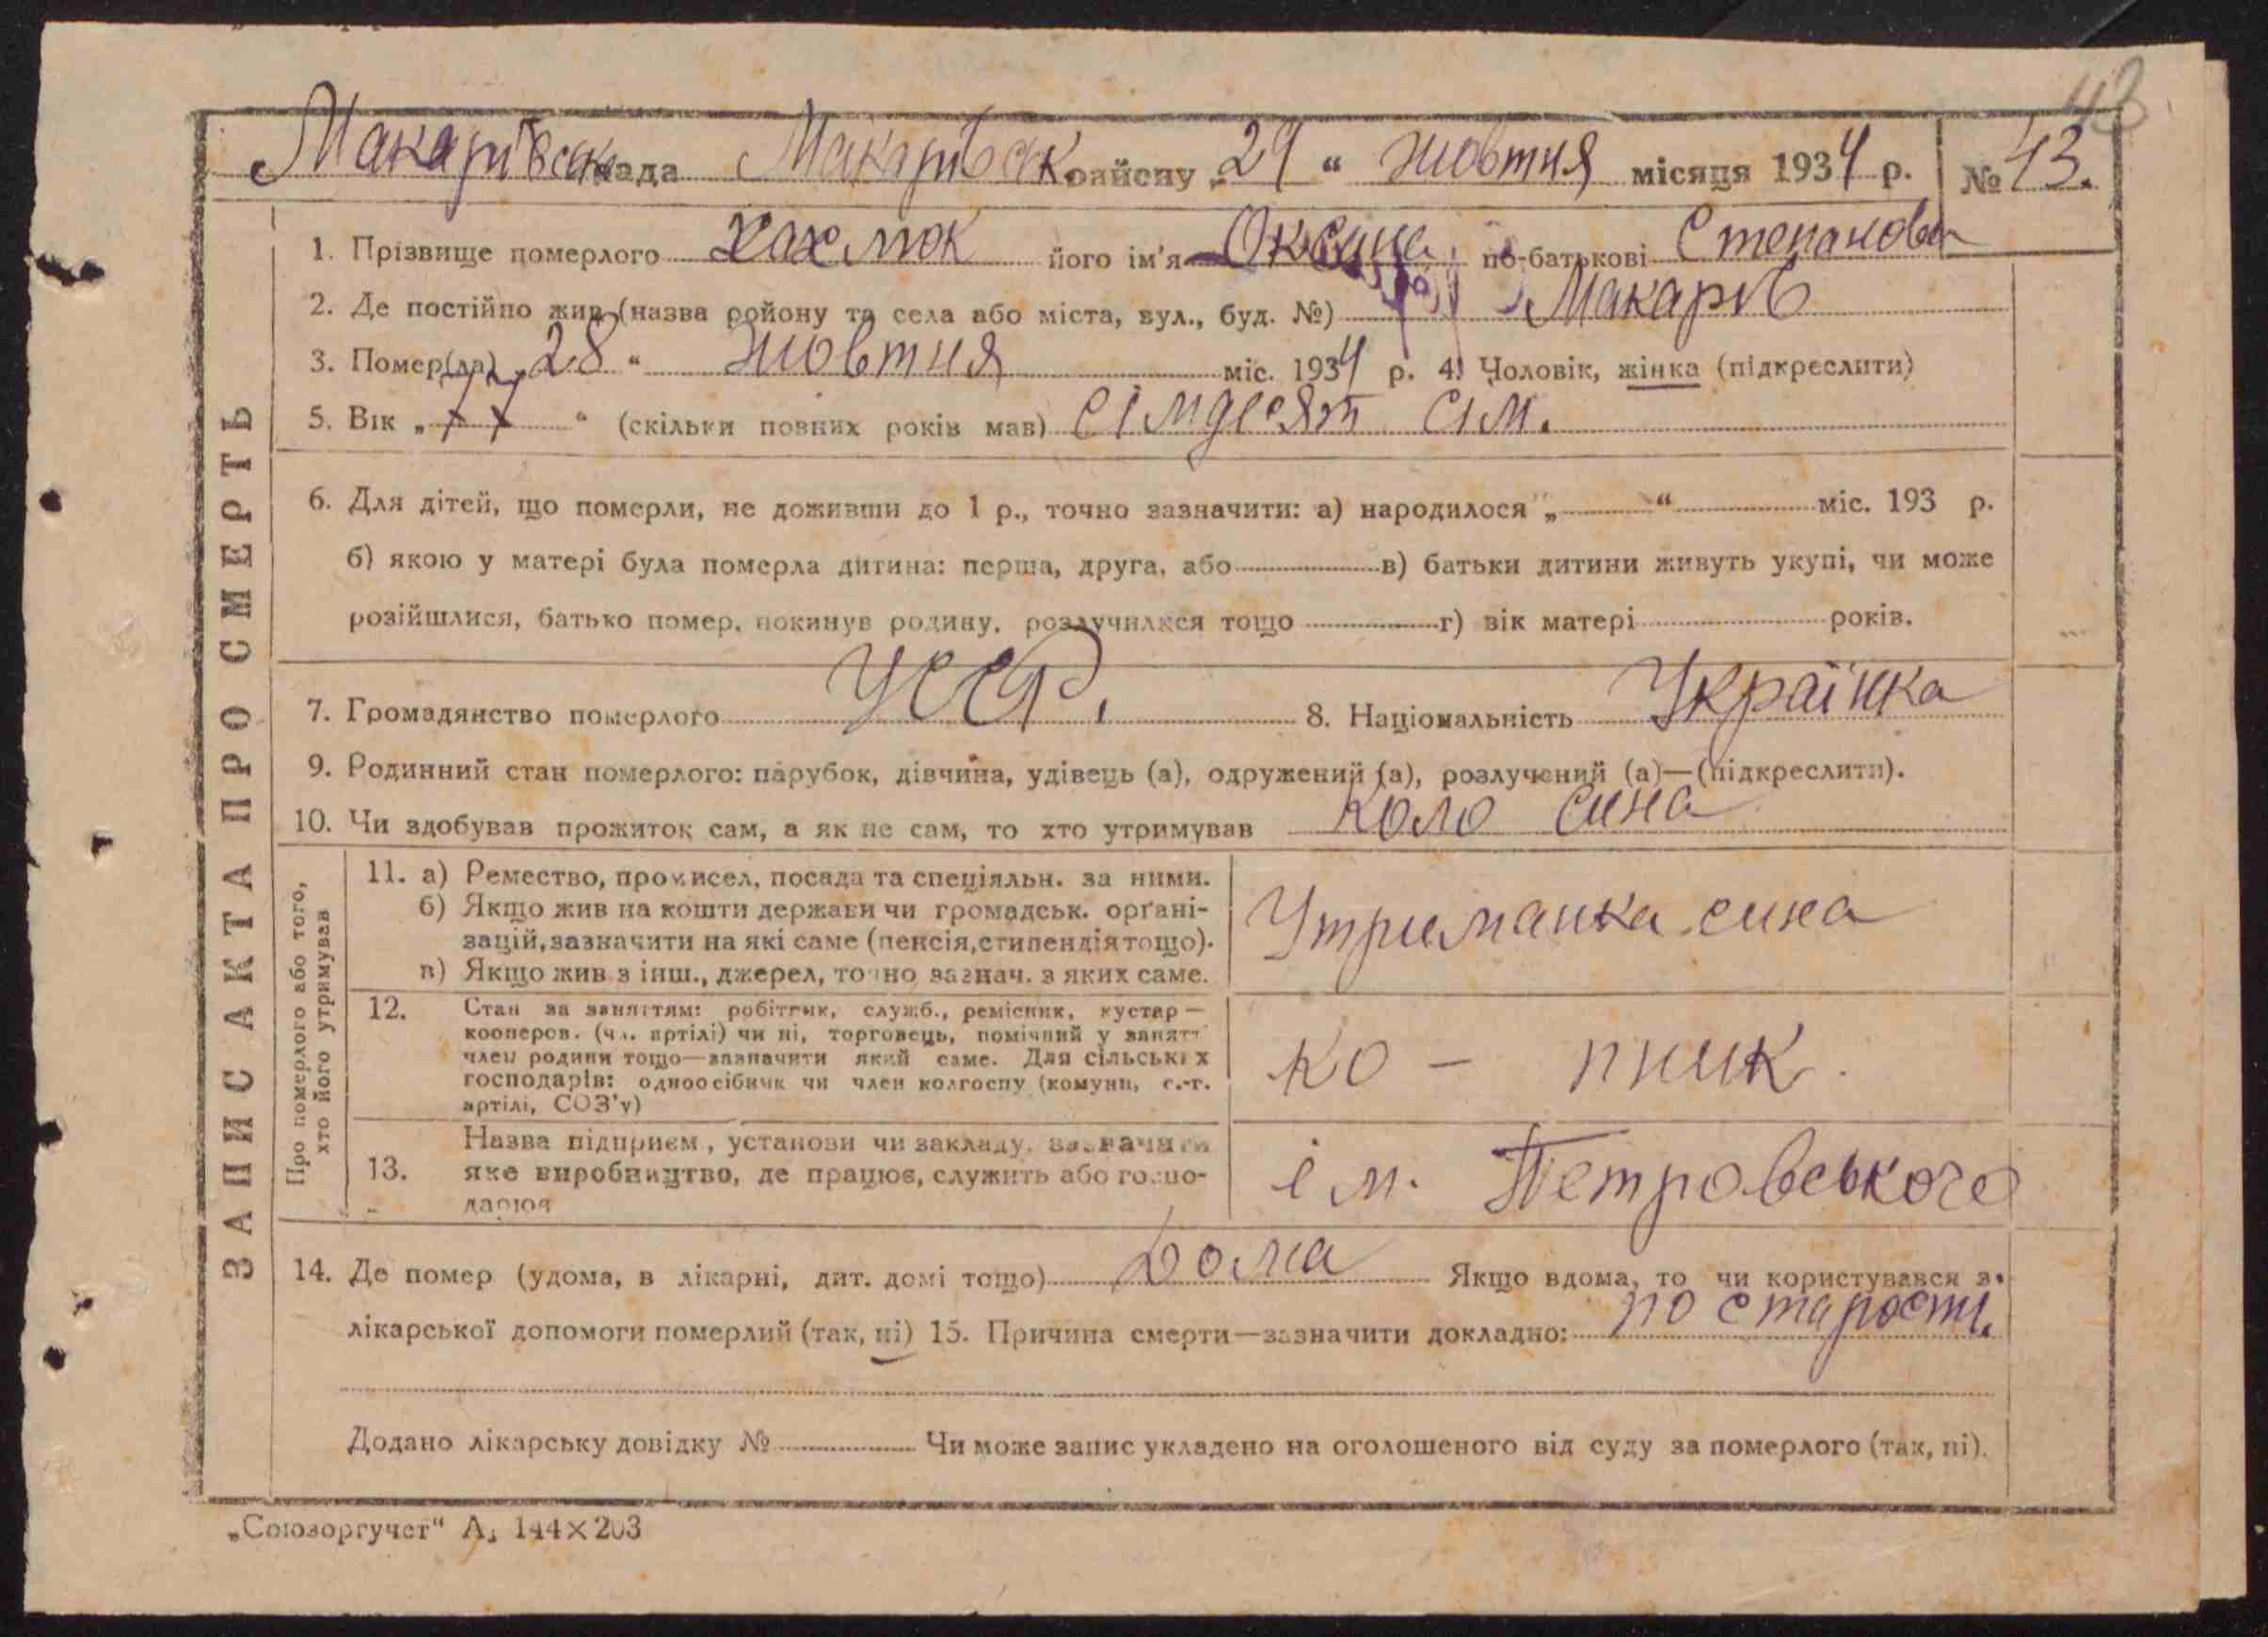 48
Макарівська рада Макарівськ району „29 “ жовтня місяця 1934 р. № 43.
ЗАПИС АКТА ПРО СМЕРТЬ
1. Прізвище померлого Хахлюк його ім'я Оксана по-батькові Степанова
2. Де постійно жив (назва ройону та села або міста, вул., буд. №) Макарів
3. Помер(ла) „28“ жовтня міс. 1934 р. 4. Чоловік, жінка (підкреслити)
5. Вік „77“ (скільки повних років мав) сімдесят сім.
6. Для дітей, що померли, не доживши до 1 р., точно зазначити: а) народилося „ “ міс. 193 р.
б) якою у матері була померла дитина: перша, друга, або в) батьки дитини живуть укупі, чи може
розійшлися, батько помер, покинув родину, розлучилися тощо г) вік матері років.
7. Громадянство померлого УССР. 8. Національність Українка
9. Родинний стан померлого: парубок, дівчина, удівець (а), одружений (а), розлучений (а)—(підкреслити).
10. Чи здобував прожиток сам, а як не сам, то хто утримував коло сина
Про померлого або того,
хто його утримував
11. а) Ремество, промисел, посада та спеціяльн. за ними.
б) Якщо жив на кошти держави чи громадськ. органі-
зацій, зазначити на які саме (пенсія, стипендія тощо).
в) Якщо жив з інш., джерел, точно зазнач. з яких саме.
Утриманка сина
12. Стан за заняттям: робітник, служб., ремісник, кустар —
кооперов. (чл. артілі) чи ні, торговець, помічний у занятт
член родини тощо—зазначити який саме. Для сільських
господарів: одноосібник чи член колгоспу (комуни, с.-г.
артілі, СОЗ'у)
ко - пник.
13. Назва підприєм., установи чи закладу, зазначити
яке виробництво, де працює, служить або госпо-
дарює
ім. Петровського
14. Де помер (удома, в лікарні, дит. домі тощо) Дома Якщо вдома, то чи користувався з
лікарської допомоги померлий (так, ні) 15. Причина смерти—зазначити докладно: по старости.
Додано лікарську довідку № Чи може запис укладено на оголошеного від суду за померлого (так, ні).
„Союзоргучет“ А₅ 144×203